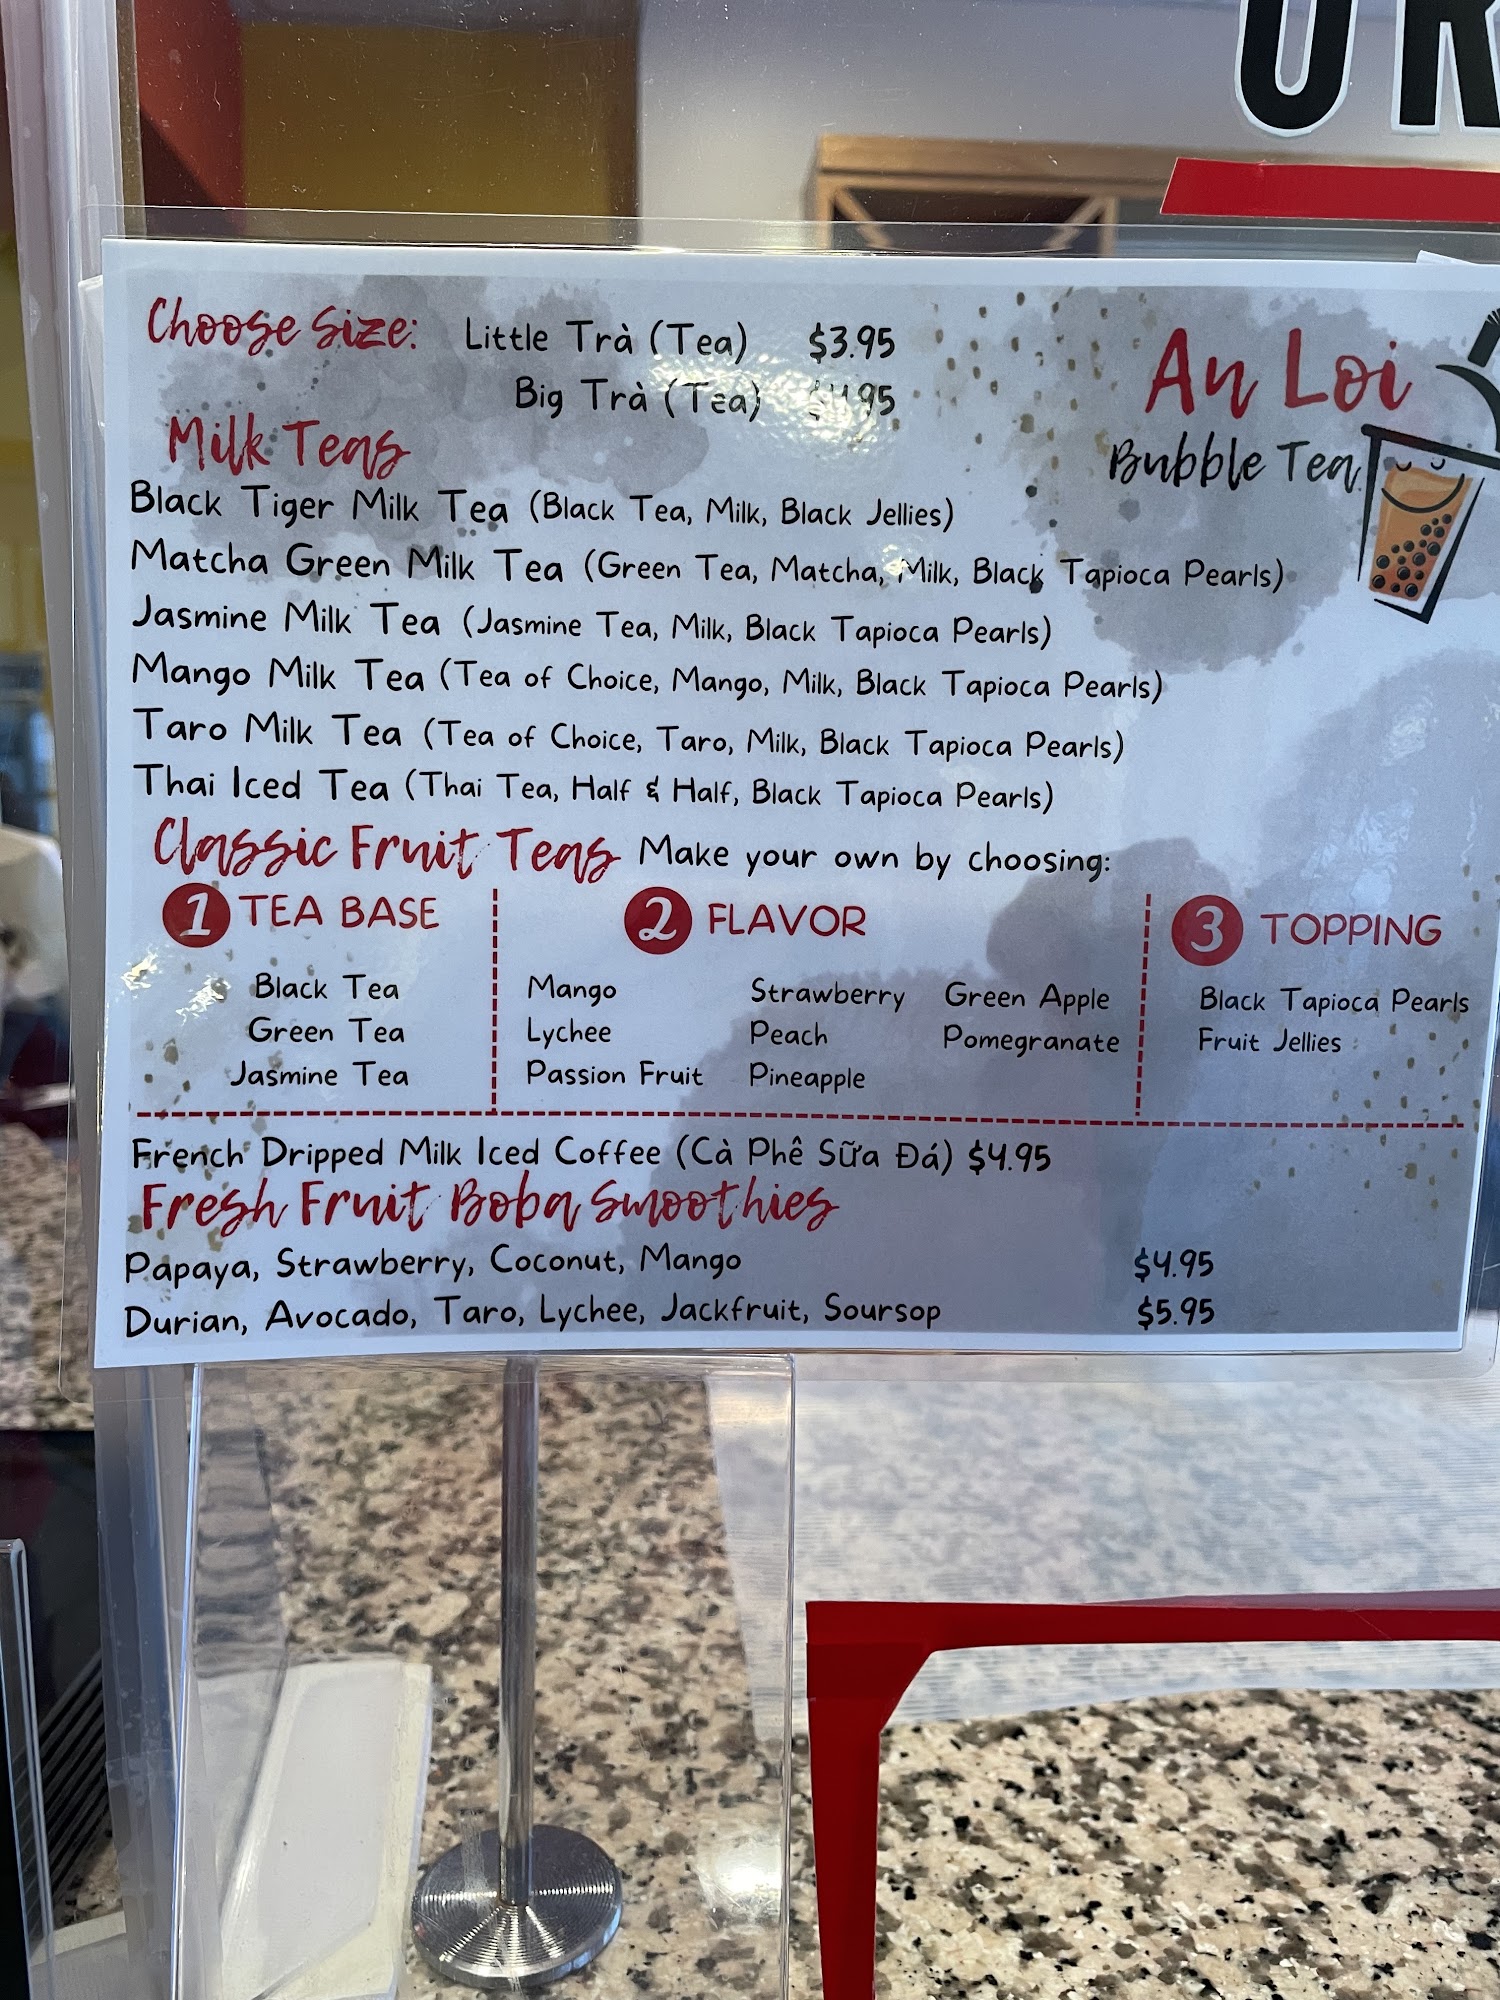 Choose Size: Little Trà (Tea) $3.95
Big Trà (Tea) $4.95
An Loi
Bubble Tea
Milk Teas
Black Tiger Milk Tea (Black Tea, Milk, Black Jellies)
Matcha Green Milk Tea (Green Tea, Matcha, Milk, Black Tapioca Pearls)
Jasmine Milk Tea (Jasmine Tea, Milk, Black Tapioca Pearls)
Mango Milk Tea (Tea of Choice, Mango, Milk, Black Tapioca Pearls)
Taro Milk Tea (Tea of Choice, Taro, Milk, Black Tapioca Pearls)
Thai Iced Tea (Thai Tea, Half & Half, Black Tapioca Pearls)
Classic Fruit Teas Make your own by choosing:
1 TEA BASE
Black Tea
Green Tea
Jasmine Tea
2 FLAVOR
Mango Strawberry Green Apple
Lychee Peach Pomegranate
Passion Fruit Pineapple
3 TOPPING
Black Tapioca Pearls
Fruit Jellies
French Dripped Milk Iced Coffee (Cà Phê Sữa Đá) $4.95
Fresh Fruit Boba Smoothies
Papaya, Strawberry, Coconut, Mango $4.95
Durian, Avocado, Taro, Lychee, Jackfruit, Soursop $5.95